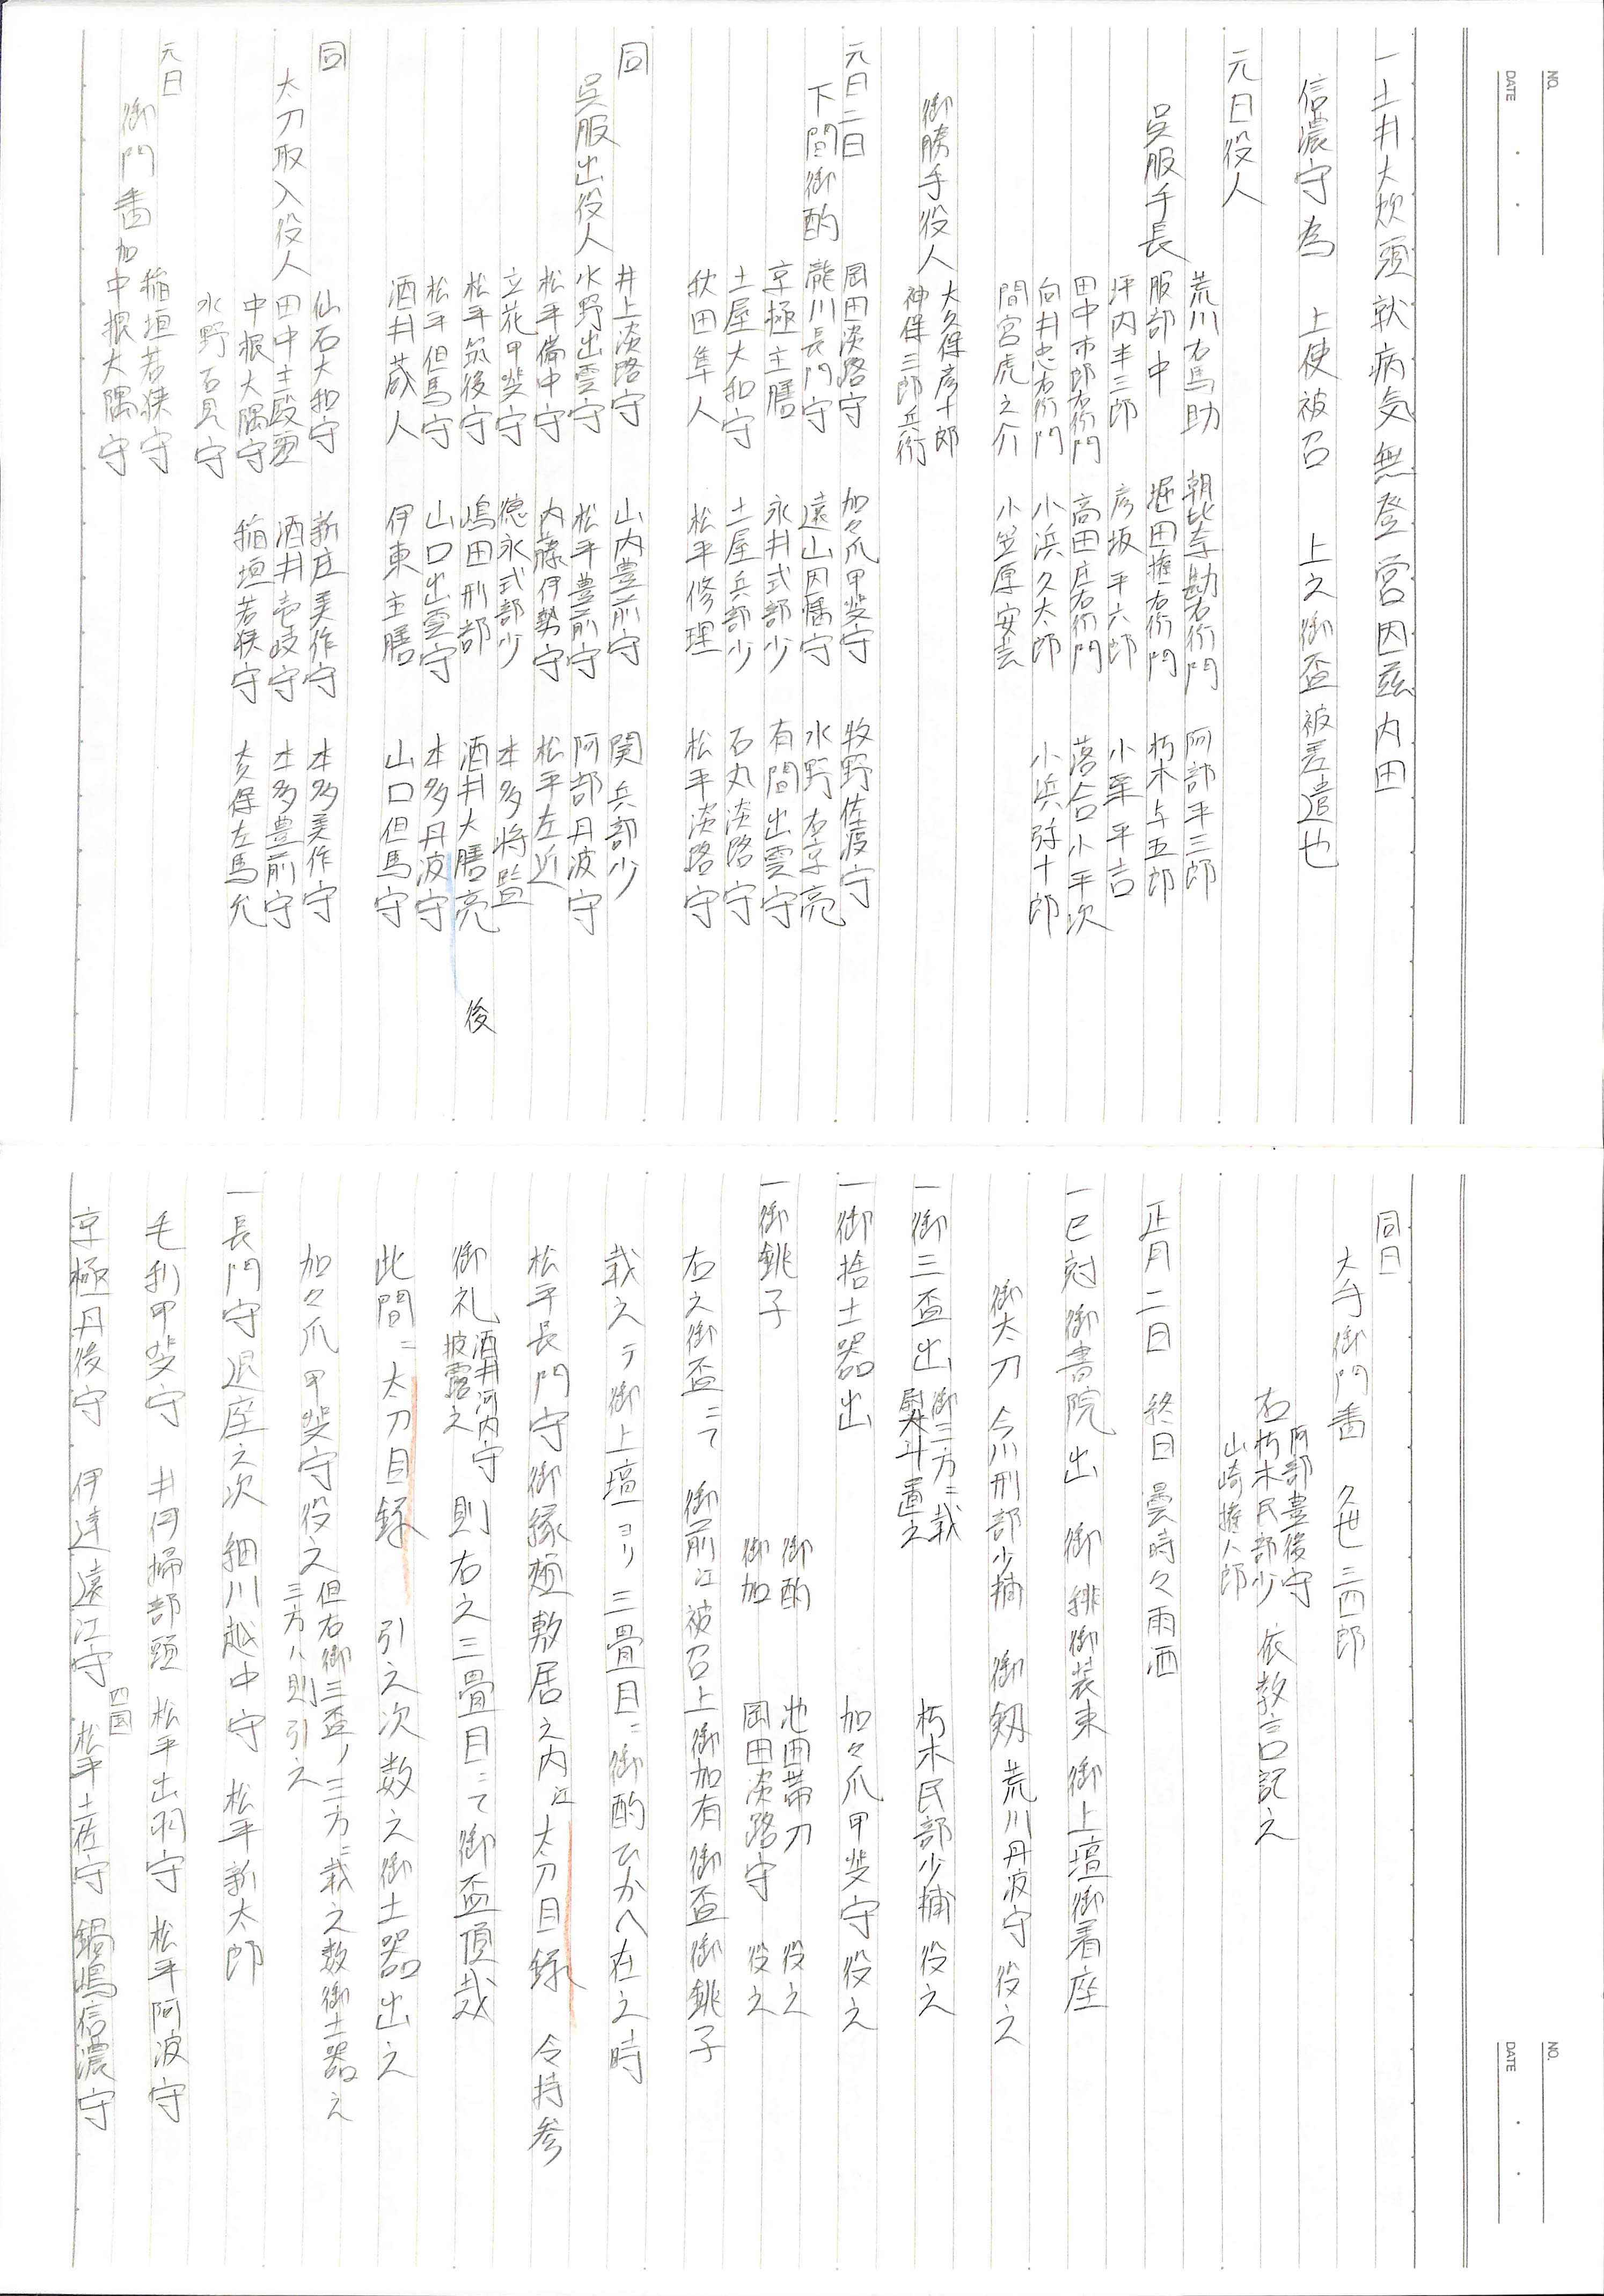 NO.
DATE
一土井大炊頭就病気無登営因茲内田
信濃守為 上使被召 上之御盃被差遣也
元日役人
荒川右馬助 朝比奈勘右衛門 阿部平三郎
呉服手長 服部中 堀田権右衛門 朽木与五郎
坪内半三郎 彦坂平六郎 小栗平吉
田中市郎右衛門 高田庄右衛門 落合小平次
向井忠右衛門 小浜久太郎 小浜弥十郎
間宮虎之介 小笠原安芸
御勝手役人 大久保彦十郎
神保三郎兵衛
元日二日 岡田淡路守 加々爪甲斐守 牧野佐渡守
下間御酌 龍川長門守 遠山因幡守 水野右京亮
京極主膳 永井式部少 有間出雲守
土屋大和守 土屋兵部少 石丸淡路守
秋田隼人 松平修理 松平淡路守
同 井上淡路守 山内豊前守 関兵部少
呉服出役人 水野出雲守 松平豊前守 阿部丹波守
松平備中守 内藤伊勢守 松平左近
立花甲斐守 徳永式部少 本多将監
松平筑後守 嶋田刑部 酒井大膳亮 後
松平但馬守 山口出雲守 本多丹波守
酒井蔵人 伊東主膳 山口但馬守
同 仙石大和守 新庄美作守 本多美作守
太刀取入役人 田中主殿頭 酒井壱岐守 本多豊前守
中根大隅守 稲垣若狭守 大久保左馬允
水野石見守
元日 稲垣若狭守
御門番加 中根大隅守
NO.
DATE
同日
大手御門番 久世三四郎
阿部豊後守
右朽木民部少 依教言記之
山崎権八郎
正月二日 終日曇時々雨洒
一巳刻御書院出御 緋御装束御上壇御着座
御太刀 今川刑部少輔 御剱 荒川丹波守 役之
一御三盃出 御三方ニ載
熨斗置之 朽木民部少輔 役之
一御捨土器出 加々爪甲斐守役之
一御銚子 御酌 池田帯刀 役之
御加 岡田淡路守 役之
右之御盃ニて 御前江被召上御加有御盃御銚子
載之テ御上壇ヨリ三畳目ニ御酌ひかへ在之時
松平長門守御縁頬敷居之内江太刀目録 令持参
御礼 酒井河内守
披露之 則右之三畳目ニて御盃頂戴
此間ニ太刀目録 引之次数之御土器出之
加々爪甲斐守役之 但右御三盃ノ三方ニ載之数御土器之
三方ハ則引之
一長門守退座之次 細川越中守 松平新太郎
毛利甲斐守 井伊掃部頭 松平出羽守 松平阿波守
京極丹後守 伊達遠江守 四国 松平土佐守 鍋嶋信濃守